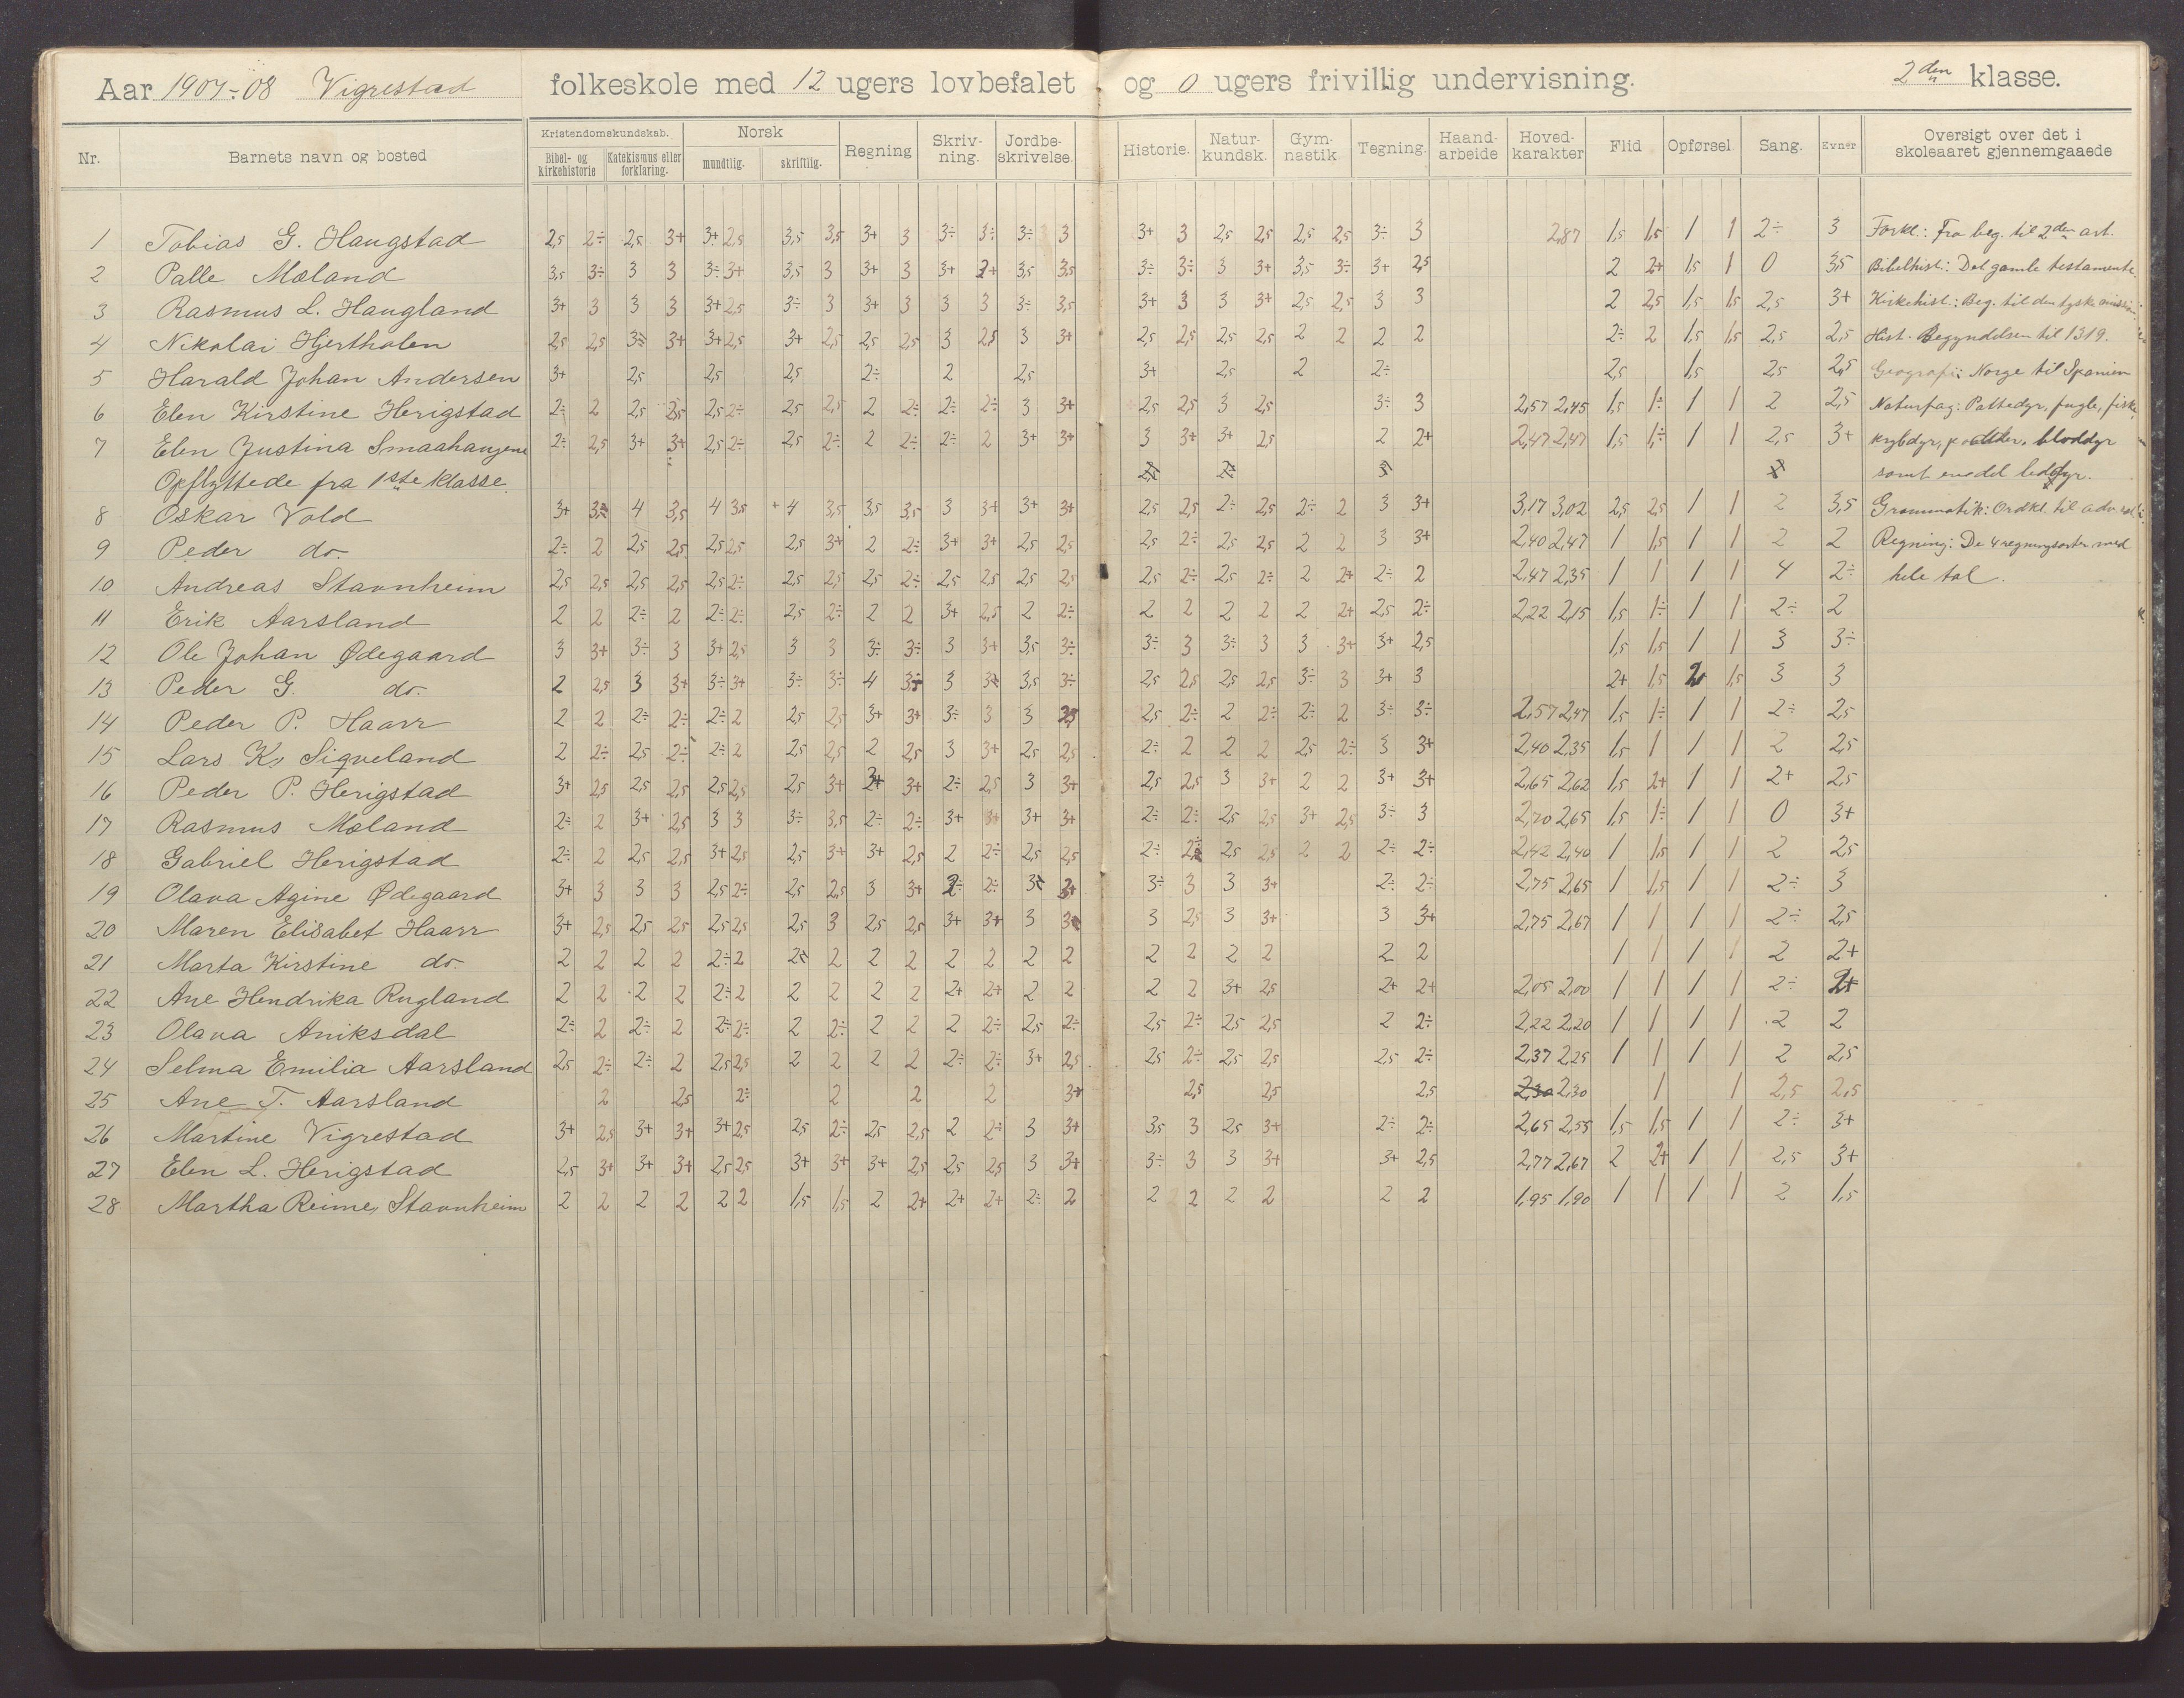 Aar 1907÷08 Vigrestad folkeskole med 12 ugers lovbefalet og 0 ugers frivillig undervisning. 2den klasse.
Nr. Barnets navn og bosted Kristendomskundskab. Bibel- og kirkehistorie Katekismus eller forklaring. Norsk mundtlig. skriftlig. Regning Skrivning. Jordbeskrivelse. Historie. Naturkundsk. Gymnastik. Tegning. Haandarbeide Hovedkarakter Flid Opførsel Sang. Evner Oversigt over det i skoleaaret gjennemgaaede
1 Tobias G. Haugstad 2,5 2÷ 2,5 3+ 3+ 2,5 3,5 3,5 3+ 3 3÷ 3÷ 3÷ 3 3+ 3 2,5 2,5 2,5 2,5 3÷ 3 2,87 1,5 1,5 1 1 2÷ 3 Forkl.: Fra beg. til 2den art.
2 Palle Mæland 3,5 3÷ 3 3 3÷ 3+ 3,5 3 3+ 3 3+ 3,5 3,5 3÷ 3÷ 3 3+ 3,5 3÷ 3+ 2,5 2 2+ 1,5 1 0 3,5 Bibelhist.: Det gamle testamente
3 Rasmus L. Haugland 3+ 3 3 3 3+ 2,5 3÷ 3 3+ 3 3 3 3÷ 3,5 3+ 3 3 3+ 2,5 2,5 3 3 2 2,5 1,5 1,5 2,5 3+ Kirkehist.: Beg. til den tyske
4 Nikolai Hjertholen 2,5 2,5 3+ 3+ 2,5 3+ 2,5 2,5 2,5 3 2,5 3 3+ 2,5 2,5 2,5 2,5 2 2 2 2 2÷ 2 1,5 1,5 2,5 2,5 Hist. Begyndelsen til 1319.
5 Harald Johan Andersen 3+ 2,5 2,5 2,5 2÷ 2 2,5 3+ 2,5 2 2÷ 2,5 1,5 2,5 2,5 Geografi: Norge til Spanien
6 Elen Kirstine Herigstad 2÷ 2 2,5 2,5 2,5 2÷ 2,5 2,5 2 2÷ 2÷ 2÷ 3 3+ 2,5 2,5 3 2,5 3÷ 3 2,57 2,45 1,5 1÷ 1 1 2 2,5 Naturfag: Pattedyr, fugle, fiske
7 Elen Justina Smaahaugene 2÷ 2,5 3+ 3+ 2,5 2÷ 2,5 2÷ 2 2÷ 2÷ 2 3+ 3+ 3 3+ 3+ 2,5 2 2+ 2,47 2,47 1,5 1÷ 1 1 2,5 3+ krybdyr, padder, bløddyr
Opflyttede fra 1ste klasse. samt en del leddyr.
8 Oskar Vold 3+ 4 3,5 4 3,5 4 3,5 3,5 3,5 3 3+ 3+ 3+ 2,5 2,5 2÷ 2,5 2÷ 2 3 3+ 3,17 3,02 2,5 2,5 1 1 2 3,5 Grammatik: Ordkl. til adv.
9 Peder do. 2÷ 2 2,5 2,5 2,5 2,5 2,5 3+ 2 2÷ 3+ 3+ 2,5 2,5 2,5 2÷ 2,5 2,5 2 2 3 3+ 2,40 2,47 1 1,5 1 1 2 2 Regning: De 4 regningsarter med
10 Andreas Stavnheim 2,5 2,5 2,5 2,5 2,5 2÷ 2,5 2,5 2,5 2÷ 2,5 2,5 2,5 2,5 2,5 2÷ 2,5 2÷ 2 2+ 2÷ 2 2,47 2,35 1 1 1 1 4 2÷ hele tal.
11 Erik Aarsland 2 2 2÷ 2 2÷ 2÷ 2,5 2÷ 2 2 3+ 2,5 2 2÷ 2 2 2 2 2 2+ 2,5 2÷ 2,22 2,15 1,5 1÷ 1 1 2÷ 2
12 Ole Johan Ødegaard 3 3+ 3÷ 3 3+ 2,5 3 3 3÷ 3÷ 3 3+ 3,5 3÷ 3÷ 3 3÷ 3 3 3+ 3+ 2,5 1,5 1,5 1 1 3 3÷
13 Peder G. do. 2 2,5 3 3+ 3÷ 3+ 3÷ 3÷ 4 3 3,5 3÷ 2,5 2,5 2,5 2,5 3÷ 3 3+ 3 2+ 1,5 2 1,5 3 3
14 Peder P. Haarr 2 2 2÷ 2÷ 2÷ 2 2,5 2,5 3+ 3+ 3÷ 3 3 2,5 2,5 2÷ 2 2÷ 2÷ 2 3÷ 3÷ 2,57 2,47 1,5 1÷ 1 1 2÷ 2,5
15 Lars K. Sigveland 2 2÷ 2,5 2÷ 2÷ 2 2,5 2,5 2 2,5 3 3+ 2,5 2,5 2÷ 2 2 2 2,5 2÷ 3 3+ 2,40 2,35 1,5 1 1 1 2 2,5
16 Peder P. Herigstad 3+ 2,5 2,5 2,5 2,5 2,5 2,5 3+ 3+ 3+ 2÷ 2,5 3 3+ 2,5 2,5 3 3+ 2 2 3+ 3+ 2,65 2,62 1,5 2+ 1 1 2+ 2,5
17 Rasmus Mæland 2÷ 2 3+ 2,5 3 3 3÷ 3,5 2÷ 2÷ 3+ 3+ 3+ 3+ 2÷ 2÷ 2,5 2,5 3+ 2,5 3÷ 3 2,70 2,65 1,5 1÷ 1 1 0 3+
18 Gabriel Herigstad 2÷ 2 2,5 2,5 3+ 2,5 2,5 3+ 3+ 2,5 2 2÷ 2,5 2,5 2÷ 2÷ 2,5 2,5 2 2 2÷ 2÷ 2,42 2,40 1 1,5 1 1 2 2,5
19 Olava Agine Ødegaard 3+ 3 3 3 2,5 2÷ 2,5 2,5 3 3+ 2÷ 2÷ 3÷ 3 3 3+ 2÷ 2÷ 2,75 2,65 1 1,5 1 1 2÷ 3
20 Maren Elisabet Haarr 3+ 2,5 2,5 2,5 2,5 2,5 2,5 3 2,5 2,5 3+ 3+ 3 3 2,5 3 3+ 3 3+ 2,75 2,67 1 1 1 1 2÷ 2,5
21 Marta Kirstine do. 2 2 2 2 2÷ 2 2 2 2 2 2 2 2 2 2 2 2 2 2 1 1 1 1 2 2+
22 Ane Hendrika Rugland 2 2 2 2 2÷ 2 2 2 2 2 2+ 2+ 2 2 2 2 3+ 2,5 2+ 2+ 2,05 2,00 1 1 1 1 2÷ 2+
23 Olava Aniksdal 2÷ 2 2÷ 2 2÷ 2÷ 2 2÷ 2 2 2 2÷ 2,5 2÷ 2,5 2÷ 2,5 2,5 2 2÷ 2,22 2,20 1 1 1 1 2 2
24 Selma Emilia Aarsland 2,5 2÷ 2÷ 2 2,5 2,5 2 2 2 2 2÷ 2÷ 3+ 2,5 2,5 2÷ 2,5 2,5 2,5 2÷ 2,37 2,25 1 1 1 1 2 2,5
25 Ane T. Aarsland 2 2,5 2÷ 2 2 2 3+ 2,5 2,5 2,5 2,30 2,30 1 1 2,5 2,5
26 Martine Vigrestad 3+ 2,5 3+ 3+ 3+ 2,5 2,5 2÷ 2,5 2,5 2 2÷ 3 3+ 3,5 3 2,5 3+ 2÷ 2÷ 2,65 2,55 1,5 1,5 1 1 2÷ 3+
27 Elen L. Herigstad 2,5 3+ 3+ 3+ 2,5 2,5 3+ 3+ 3+ 2,5 2,5 2,5 3 3+ 3÷ 3 3 3+ 3+ 2,5 2,77 2,67 2 2+ 1 1 2,5 3+
28 Martha Reime, Stavnheim 2 2 2 2 2 2 1,5 1,5 2 2+ 2+ 2+ 2÷ 2 2 2 2 2 2 2 1,95 1,90 1 1 1 1 2 1,5